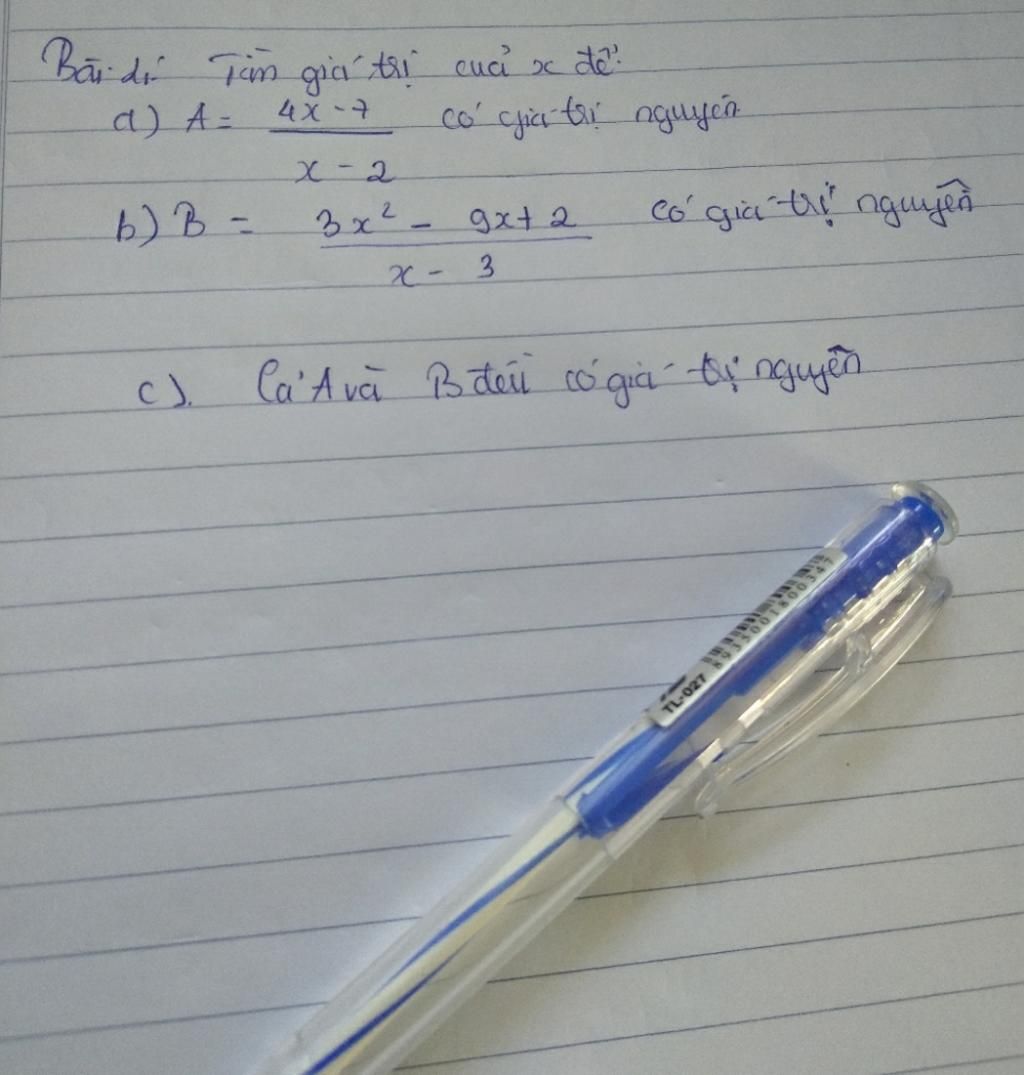 Bài: Tìm giá trị của x để:
a) A = 4x - 7 / x - 2 có giá trị nguyên
b) B = 3x² - 9x + 2 / x - 3 có giá trị nguyên
c). Cả A và B đều có giá trị nguyên
TL-027
8935001800347